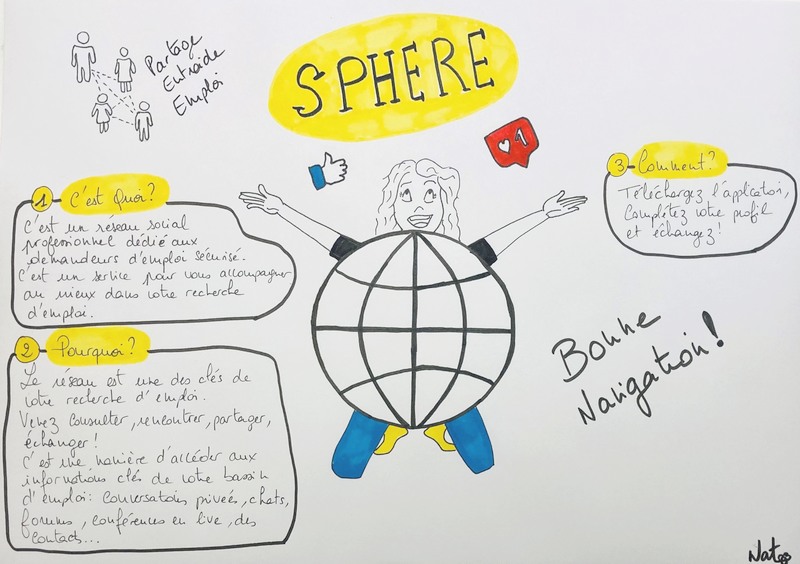 SPHERE
Partage
Entraide
Emploi
1
1 C'est Quoi?
C'est un réseau social
professionnel dédié aux
demandeurs d'emploi sécurisé.
C'est un service pour vous accompagner
au mieux dans votre recherche
d'emploi.
2 Pourquoi?
Le réseau est une des clés de
votre recherche d'emploi.
Venez consulter, rencontrer, partager,
échanger!
C'est une manière d'accéder aux
informations clés de votre bassin
d'emploi: conversations privées, chats,
forums, conférences en live, des
contacts...
3 Comment?
Téléchargez l'application,
Complétez votre profil
et échangez!
Bonne
Navigation!